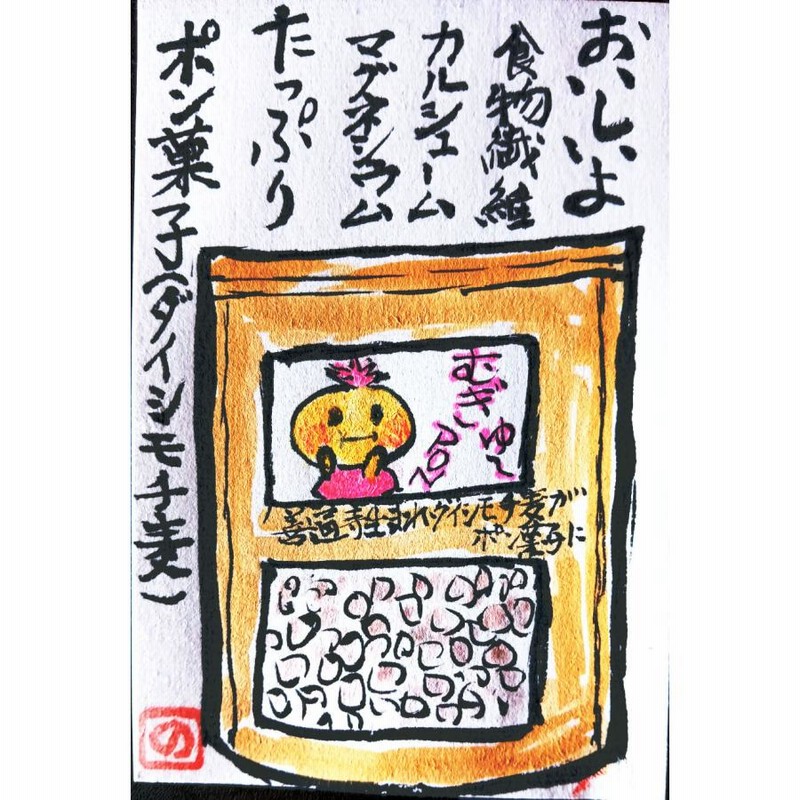 おいしいよ
食物繊維
カルシューム
マグネシウム
たっぷり
ポン菓子(ダイシモチ麦)
むぎゅ〜
PON
善通寺生まれダイシモチ麦が
ポン菓子に
の